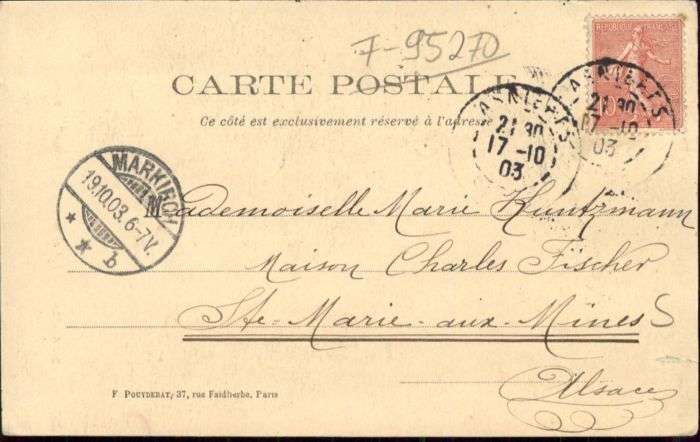 F-95270
RÉPUBLIQUE FRANÇAISE
10
CARTE POSTALE
Ce côté est exclusivement réservé à l'adresse
ASNIÈRES
21 30
17 -10
03
ASNIÈRES
21 30
17 -10
03
MARKIRCH
19.10.03.6-7V.
* * b
Mademoiselle Marie Kuntzmann
Maison Charles Fischer
Ste-Marie-aux-Mines
Alsace
F POUYDEBAT, 37, rue Faidherbe, Paris